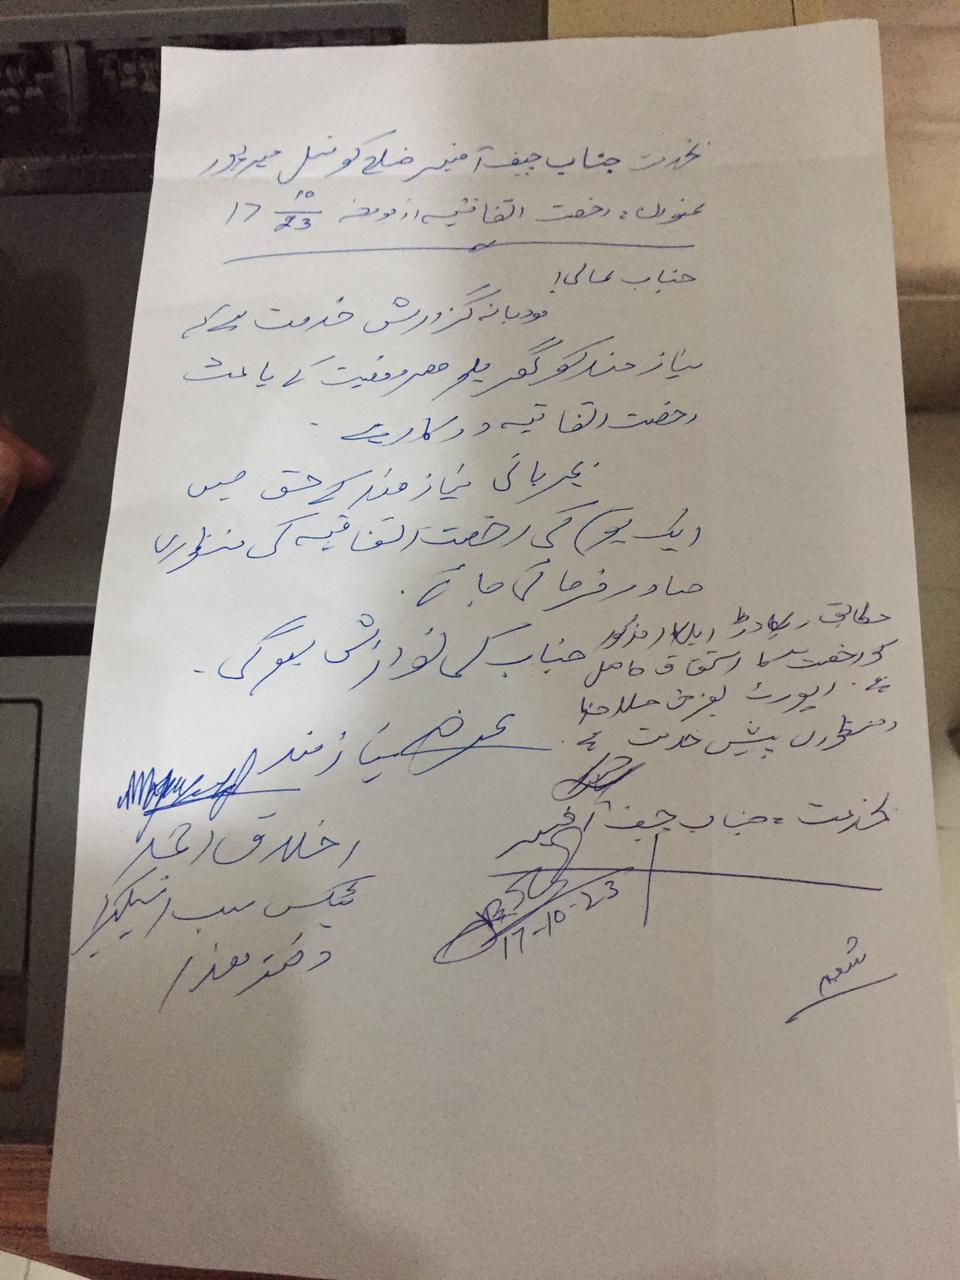 بخدمت جناب چیف آفیسر ضلع کونسل میرپور
عنوان: رخصت اتفاقیہ از مورخہ 17 10/23
جناب عالی!
مودبانہ گزارش خدمت ہے کہ
نیاز مند کو گھریلو مصروفیت کے باعث
رخصت اتفاقیہ درکار ہے۔
بمہربانی نیاز مند کے حق میں
ایک یوم کی رخصت اتفاقیہ کی منظوری
صادر فرمائی جائے۔
جناب کی نوازش ہوگی۔
عرضے نیاز مند
اخلاق احمد
ٹیکس سب انسپکٹر
دفتر ھذا
مطابق ریکارڈ اہلکار مذکور
کو رخصت کا استحقاق حاصل
ہے۔ رپورٹ بغرض ملاحظہ
و منظوری پیش خدمت ہے۔
بخدمت: جناب چیف آفیسر
17-10-23